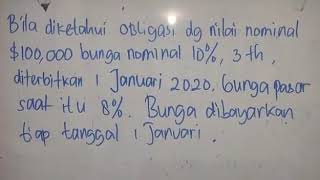 Bila diketahui obligasi dg nilai nominal
$100,000 bunga nominal 10%, 3 th,
diterbitkan 1 Januari 2020. bunga pasar
saat itu 8%. Bunga dibayarkan
tiap tanggal 1 Januari.